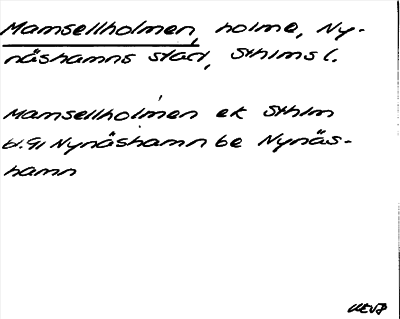 Mamsellholmen, holme, Ny-
näshamns stad, Sthlms l.
Mamsellholmen ek Sthlm
bl. 91 Nynäshamn be Nynäs-
hamn